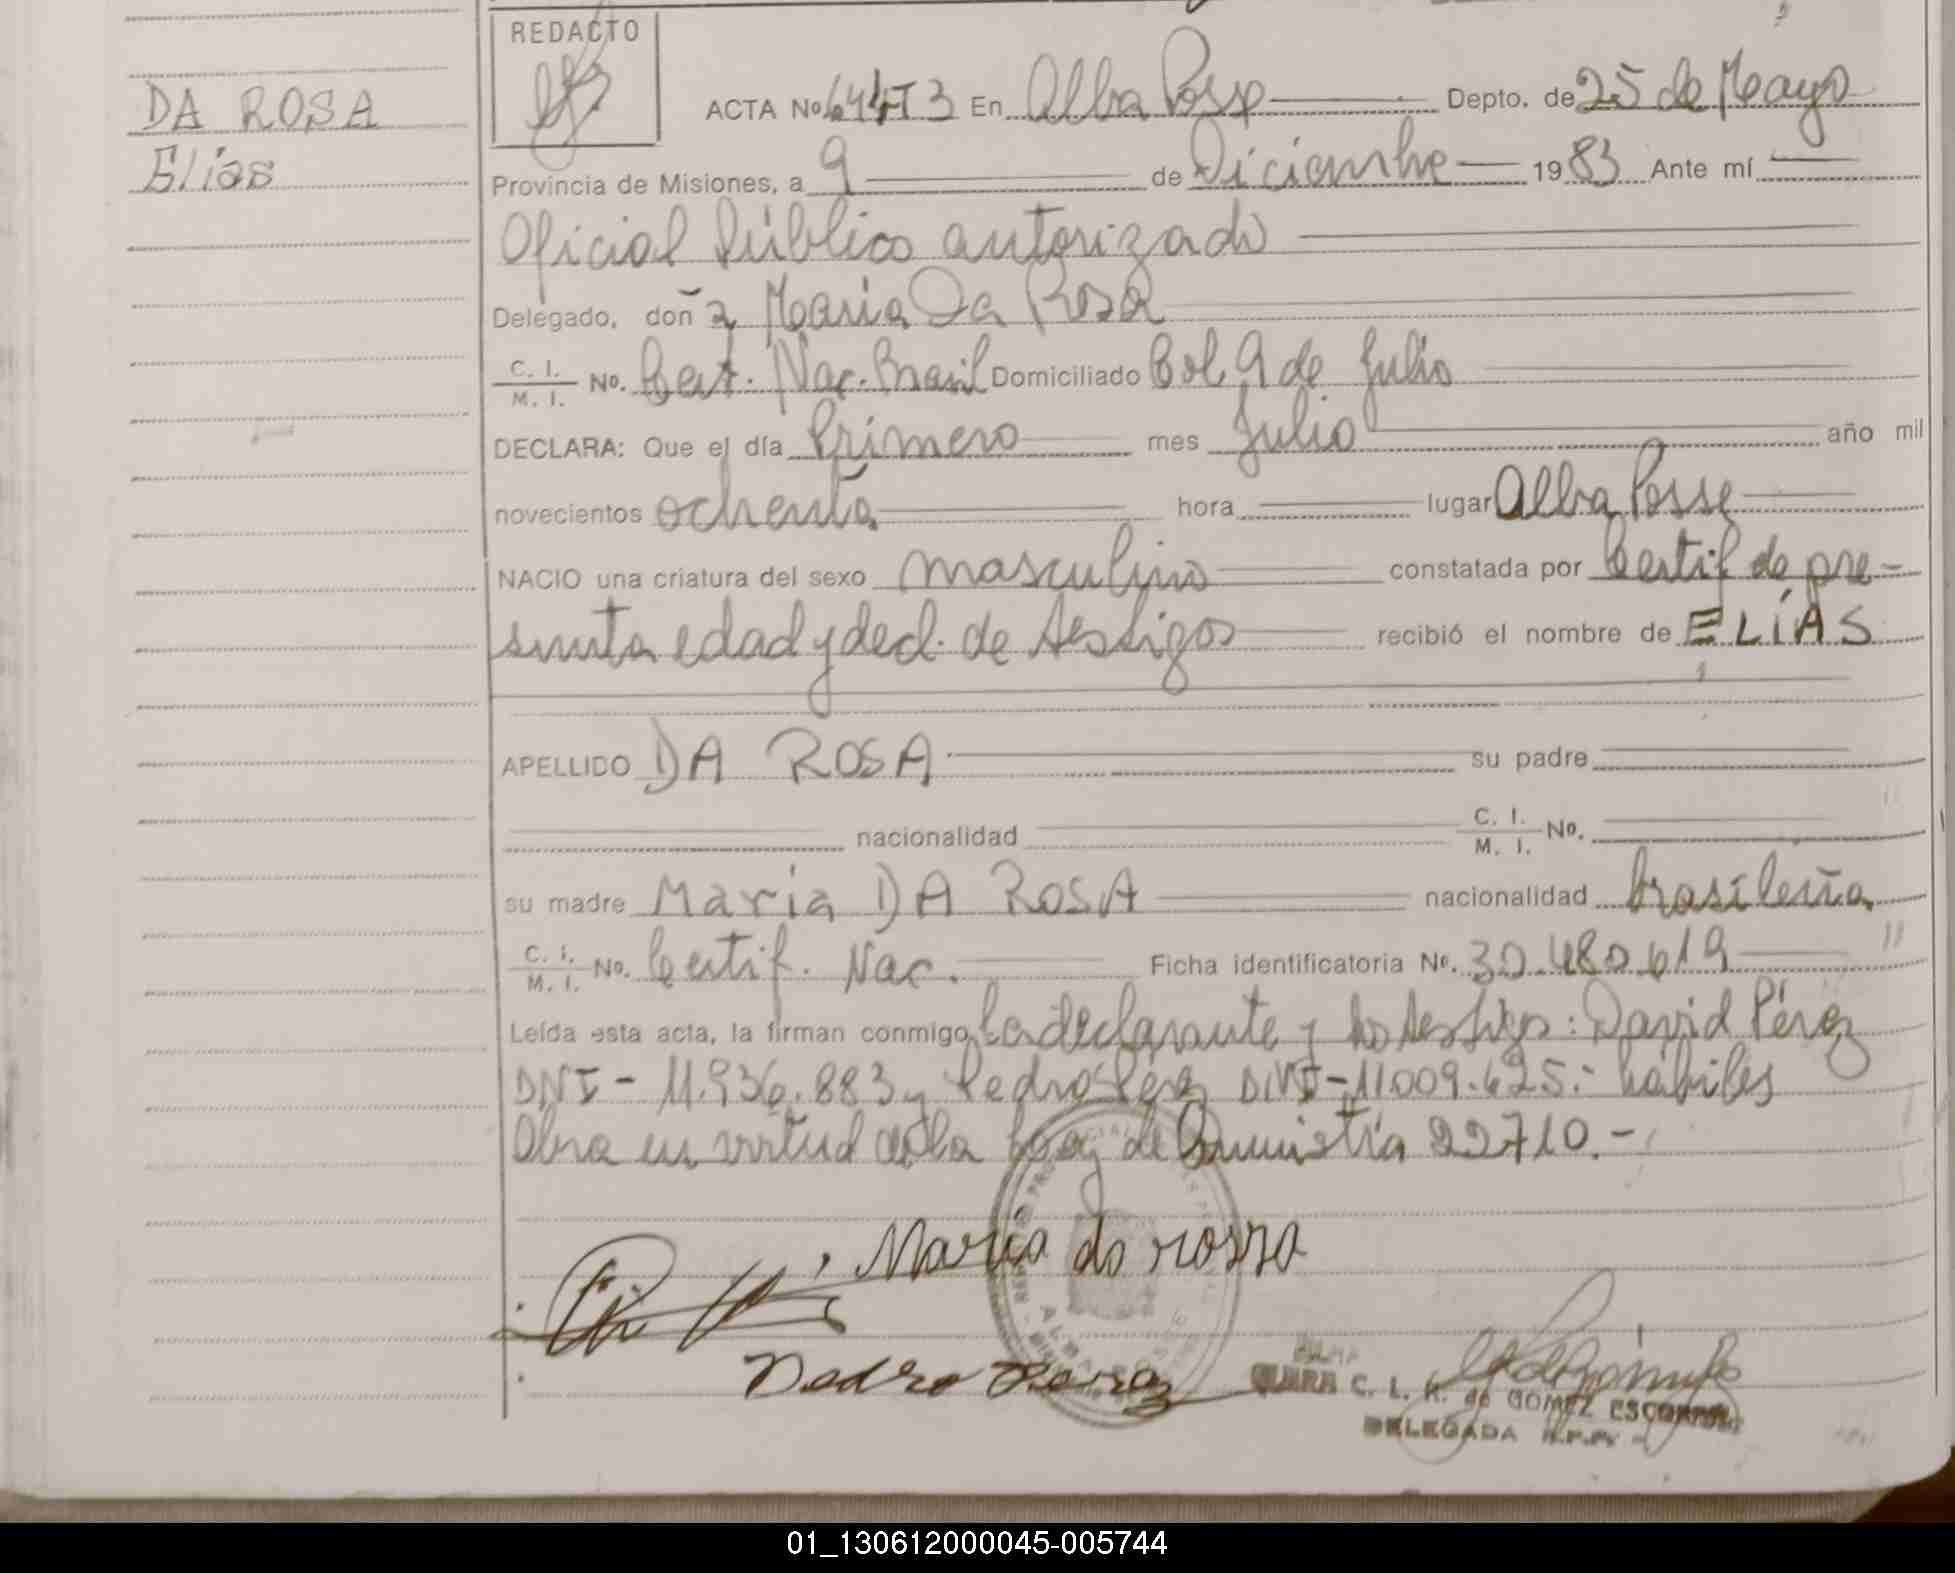 REDACTO
DA ROSA
Elías
ACTA No 644T3 En Alba Posse Depto. de 25 de Mayo
Provincia de Misiones, a 9 de Diciembre 1983 Ante mí
Oficial Público autorizado
Delegado, doña María Da Rosa
C. I. / M. I. No. Cert. Nac. Brasil Domiciliado Col. 9 de Julio
DECLARA: Que el día Primero mes Julio año mil
novecientos ochenta hora lugar Alba Posse
NACIO una criatura del sexo masculino constatada por Certif de pre-
sunta edad y decl. de testigos recibió el nombre de ELÍAS
APELLIDO DA ROSA su padre
nacionalidad C. I. / M. I. No.
su madre María DA ROSA nacionalidad brasileña
C. I. / M. I. No. Certif. Nac. Ficha identificatoria No. 30.480.619
Leída esta acta, la firman conmigo, la declarante y los testigos: David Pérez
DNI - 11.936.883 y Pedro Pérez DNI - 11009.425.- hábiles
Obra en virtud de la Ley de Amnistía 22710.-
María da rossa
Pedro Perez
CLARA C. L. R. de GOMEZ
DELEGADA R.P.P.
01_130612000045-005744